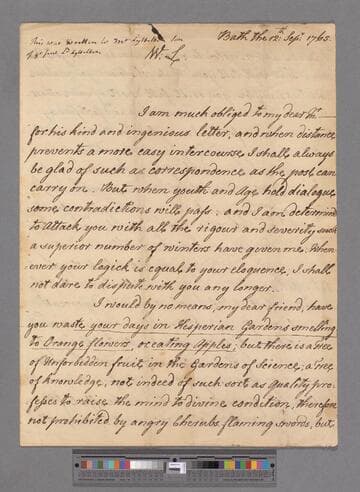 Bath the 12th Sepr. 1765.
This was written to Mr Lyttelton Son
of Ld Lyttelton
Mr. L
I am much obliged to my dear Mr.—
for his kind and ingenious letter, and when distance
prevents a more easy intercourse I shall always
be glad of such as correspondence as the post can
carry on. But when youth and Age hold dialogue
some contradictions will pass; and I am determind
to attack you with all the rigour and severity such
a superior number of winters have given me. When
ever your logick is equal to your eloquence, I shall
not dare to dispute with you any longer.
I would by no means, my dear friend, have
you waste your days in Hesperian Gardens smelling
to Orange flowers, or eating Apples; but there is a Tree
of Unforbidden fruit in the Gardens of Science; a Tree
of Knowledge, not indeed of such sort as Quality pro=
fesses to raise the mind to divine condition, therefore
not prohibited by angry Cherubs flaming swords, but